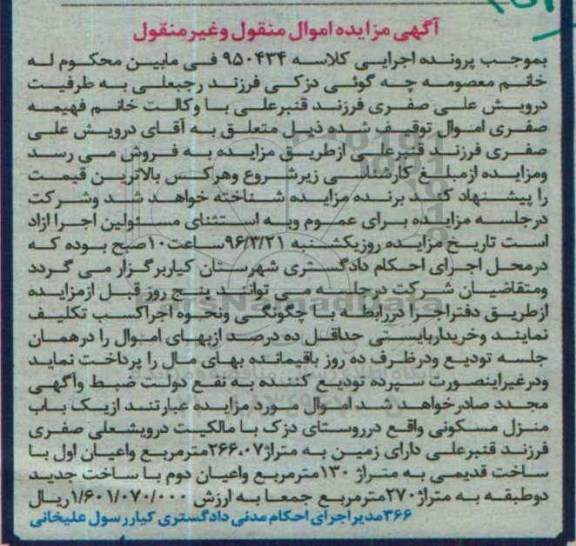 آگهی مزایده اموال منقول وغیرمنقول
بموجب پرونده اجرایی کلاسه ۹۵۰۴۳۴ فی مابین محکوم له
خانم معصومه چه گوئی دزکی فرزند رجبعلی به طرفیت
درویش علی صفری فرزند قنبرعلی با وکالت خانم فهیمه
صفری اموال توقیف شده ذیل متعلق به آقای درویش علی
صفری فرزند قنبرعلی ازطریق مزایده به فروش می رسد
ومزایده ازمبلغ کارشناسی زیرشروع وهرکس بالاترین قیمت
را پیشنهاد کند برنده مزایده شناخته خواهد شد وشرکت
درجلسه مزایده برای عموم وبه استثنای مسئولین اجرا ازاد
است تاریخ مزایده روزیکشنبه ۹۶/۳/۲۱ساعت۱۰صبح بوده که
درمحل اجرای احکام دادگستری شهرستان کیاربرگزار می گردد
ومتقاضیان شرکت درجلسه می توانند پنج روز قبل ازمزایده
ازطریق دفتراجرا دررابطه با چگونگی ونحوه اجراکسب تکلیف
نمایند وخریداربایستی حداقل ده درصد ازبهای اموال را درهمان
جلسه تودیع ودرظرف ده روز باقیمانده بهای مال را پرداخت نماید
ودرغیراینصورت سپرده تودیع کننده به نفع دولت ضبط وآگهی
مجدد صادرخواهد شد اموال مورد مزایده عبارتند ازیک باب
منزل مسکونی واقع درروستای دزک با مالکیت درویشعلی صفری
فرزند قنبرعلی دارای زمین به متراژ۲۶۶،۰۷مترمربع واعیان اول با
ساخت قدیمی به متراژ ۱۳۰مترمربع واعیان دوم با ساخت جدید
دوطبقه به متراژ۲۷۰مترمربع جمعا به ارزش ۱/۶۰۱/۰۷۰/۰۰۰ریال
۳۶۶مدیراجرای احکام مدنی دادگستری کیاررسول علیخانی